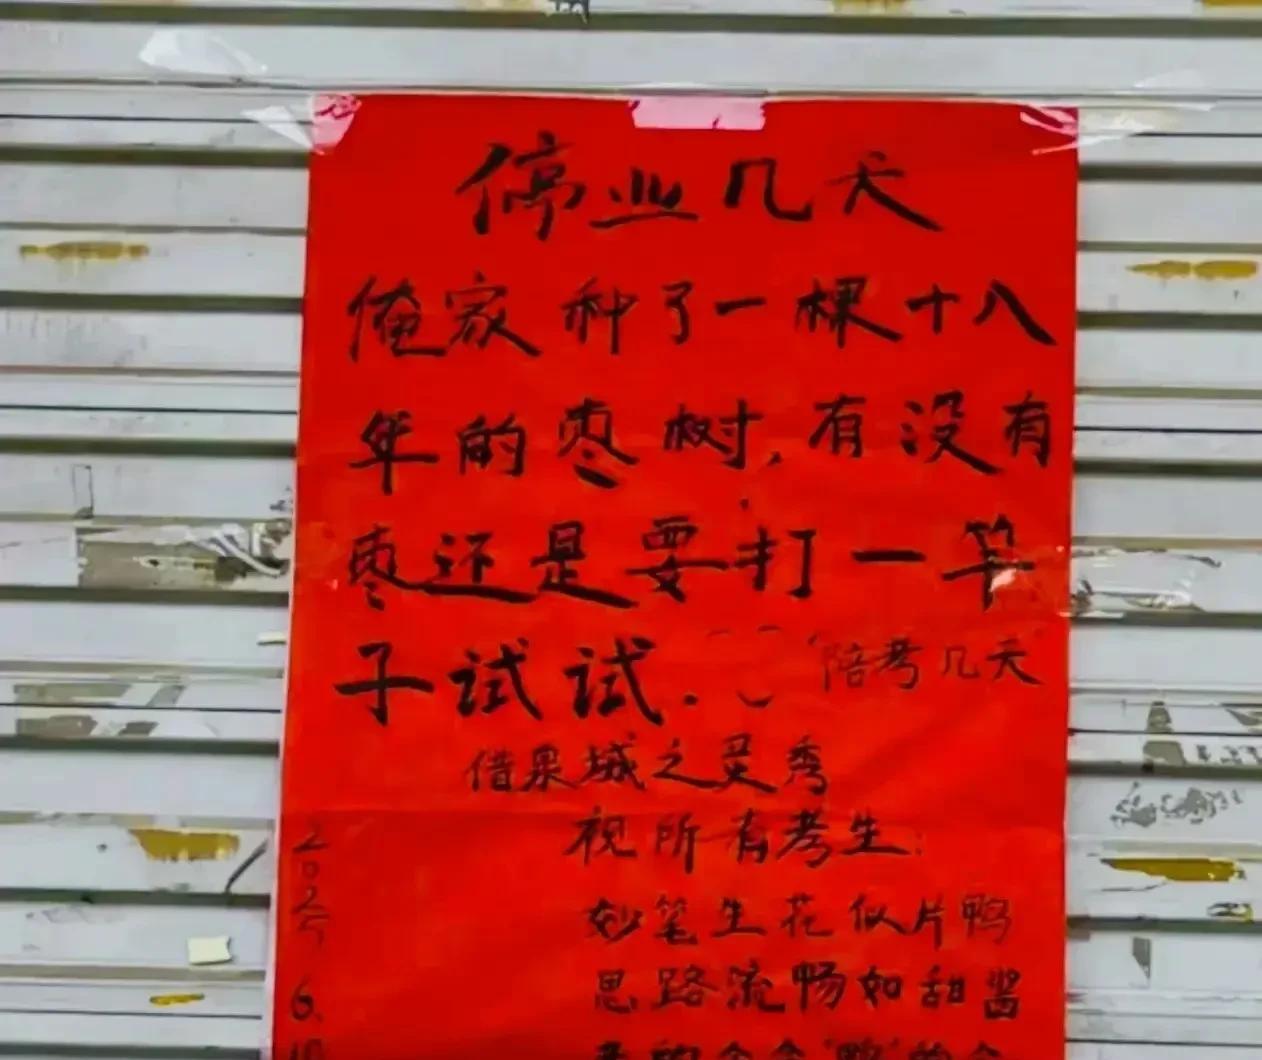 停业几天
俺家种了一棵十八
年的枣树,有没有
枣还是要打一竿
子试试.
陪考几天
借泉城之灵秀
视所有考生:
妙笔生花似片鸭
思路流畅如甜酱
2025.
6.